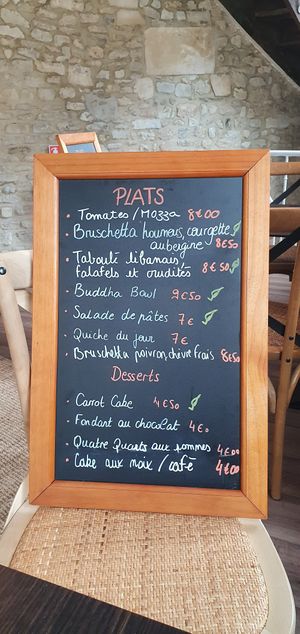 PLATS
• Tomates/Mozza 8€00
• Bruschetta houmous, courgette,
aubergine 8€50
• Taboulé libanais,
falafels et crudités 8€50
• Buddha Bowl 9€50
• Salade de pâtes 7€
• Quiche du jour 7€
• Bruschetta poivron, chèvre frais 8€50
Desserts
• Carrot Cake 4€50
• Fondant au chocolat 4€0
• Quatre Quarts aux pommes 4€00
• Cake aux noix / café 4€00